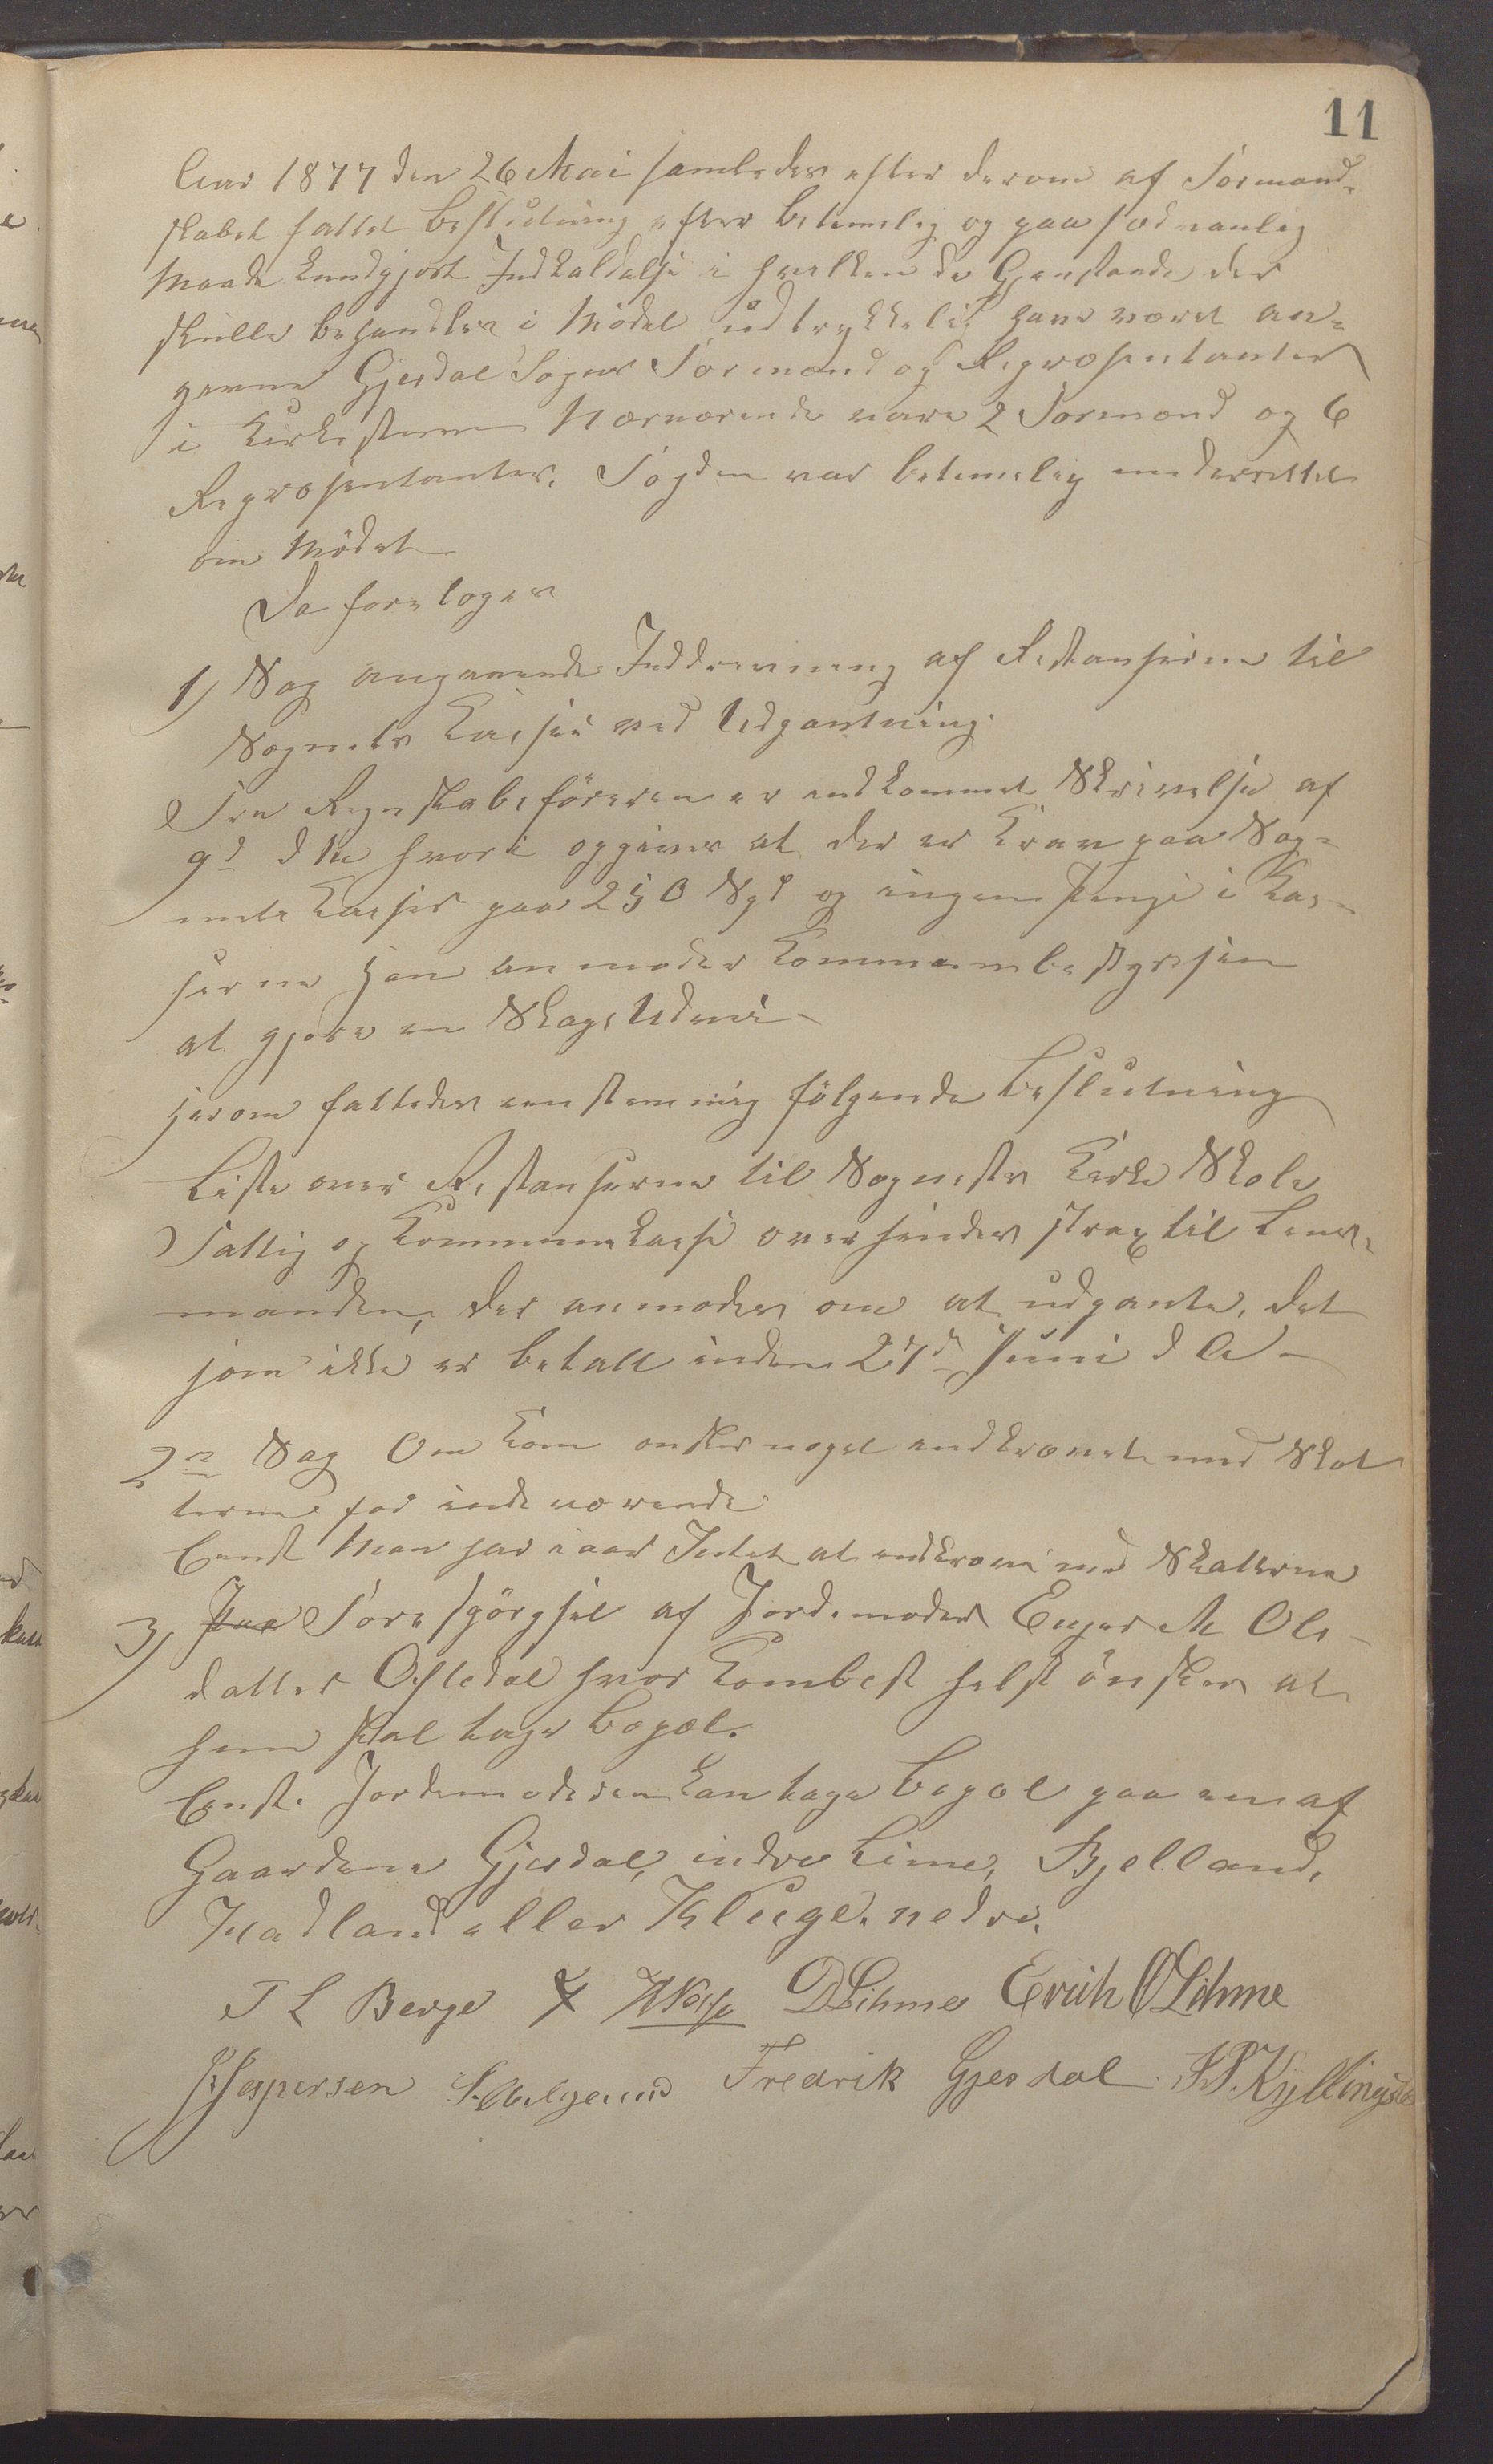 11
Aar 1877 den 26 Mai samledes efter derom af Formand-
skabet fattet Beslutning efter betimelig og paa sædvanlig
Maade kundgjort Indkaldelse i hvilken de Gjenstande der
skulle behandles i Mödet udtrykkelig have været an-
givne Gjesdal Sogns Formænd og Repræsentanter
i Kirkestuen Nærværende vare 2 Formænd og 6
Repræsentanter. Fogden var betimelig underrettet
om Mödet
Da foretoges
1) Sag angaaende Inddrivning af Restanserne til
Sognets Kasser ved Udpantning.
Fra Regnskabsföreren er indkommet Skrivelse af
9d d M hvori opgives at der er Krav paa Sog-
nets Kasser paa 250 Spd og ingen Penge i Kas-
serne han anmoder Kommunebestyrelsen
at gjøre en Slags Udvei
herom fattedes eenstemmig fölgende Beslutning
Liste over Restanserne til Sognets Kirke Skole
Fattig og Kommunekasse oversendes strax til Lens-
manden, der anmodes om at udpante, det
som ikke er betalt inden 27d Juni d A
2n Sag Om Kom onsker noget indkrævet med Skat
terne for indeværende
Bensl Man har iaar Intet at indkræve med Skatterne
3) Paa Forespörgsel af Jordemoder Enger M Ols-
datter Ofstedal hvor Kombest helst önsker at
hun skal tage Bopæl.
Bensl. Jordemoderen kan tage Bopæl paa en af
Gaardene Gjesdal, indre Lime, Bjelland,
Madland eller Kluge nedre.
T L Berge X DLihme Erich OLihme
JJespersen Fredrik Gjesdal. S.P.Kyllingsta